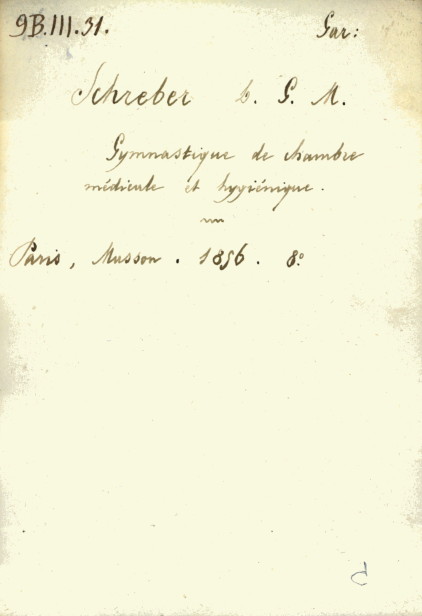 9B.III.31. Gar:
Schreber b. G. M.
Gymnastique de chambre
médicale et hygiénique.
Paris, Masson. 1856. 8°